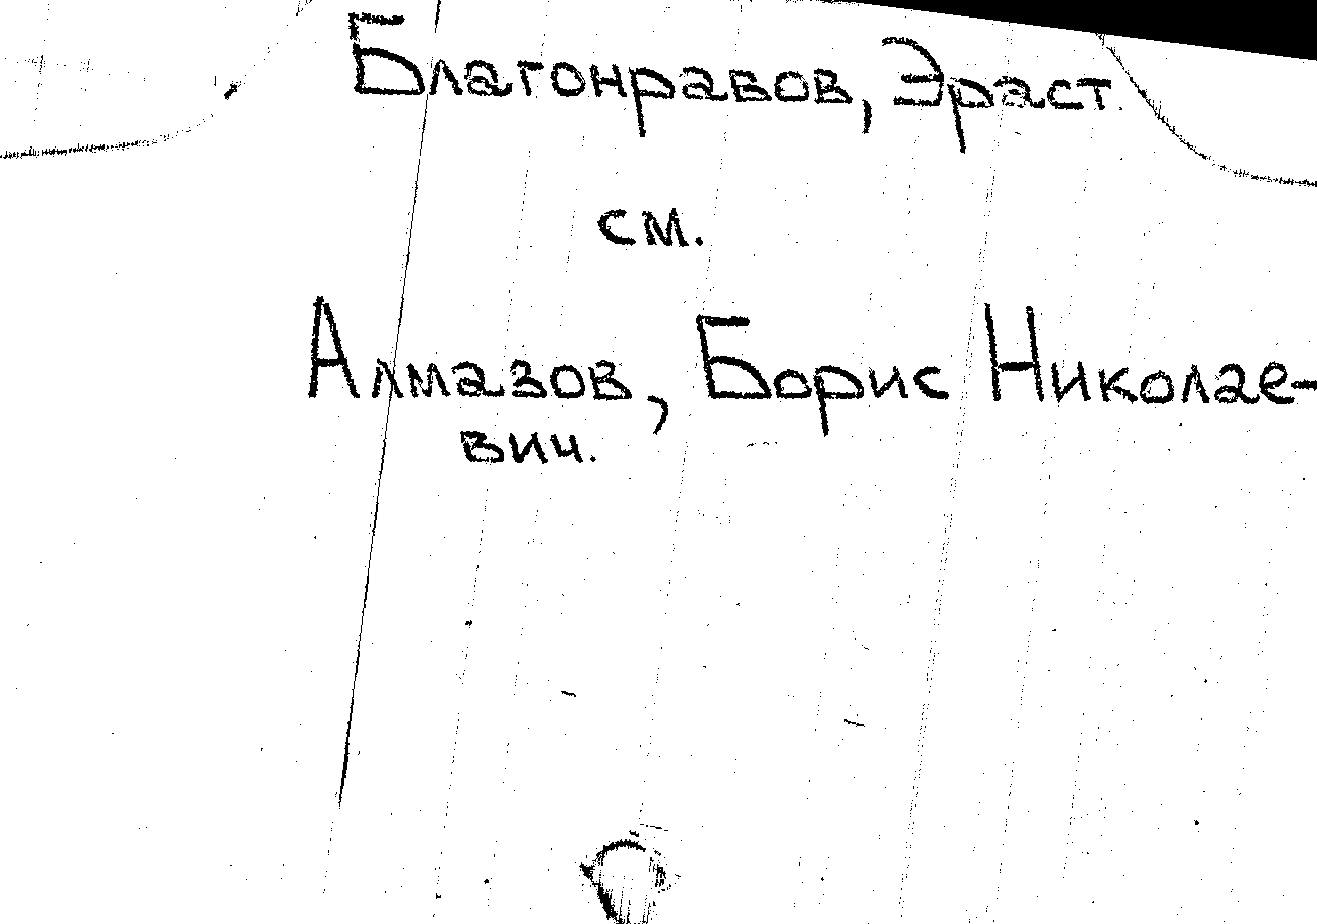 Благонравов, Эраст
см.
Алмазов, Борис Николае-
вич.